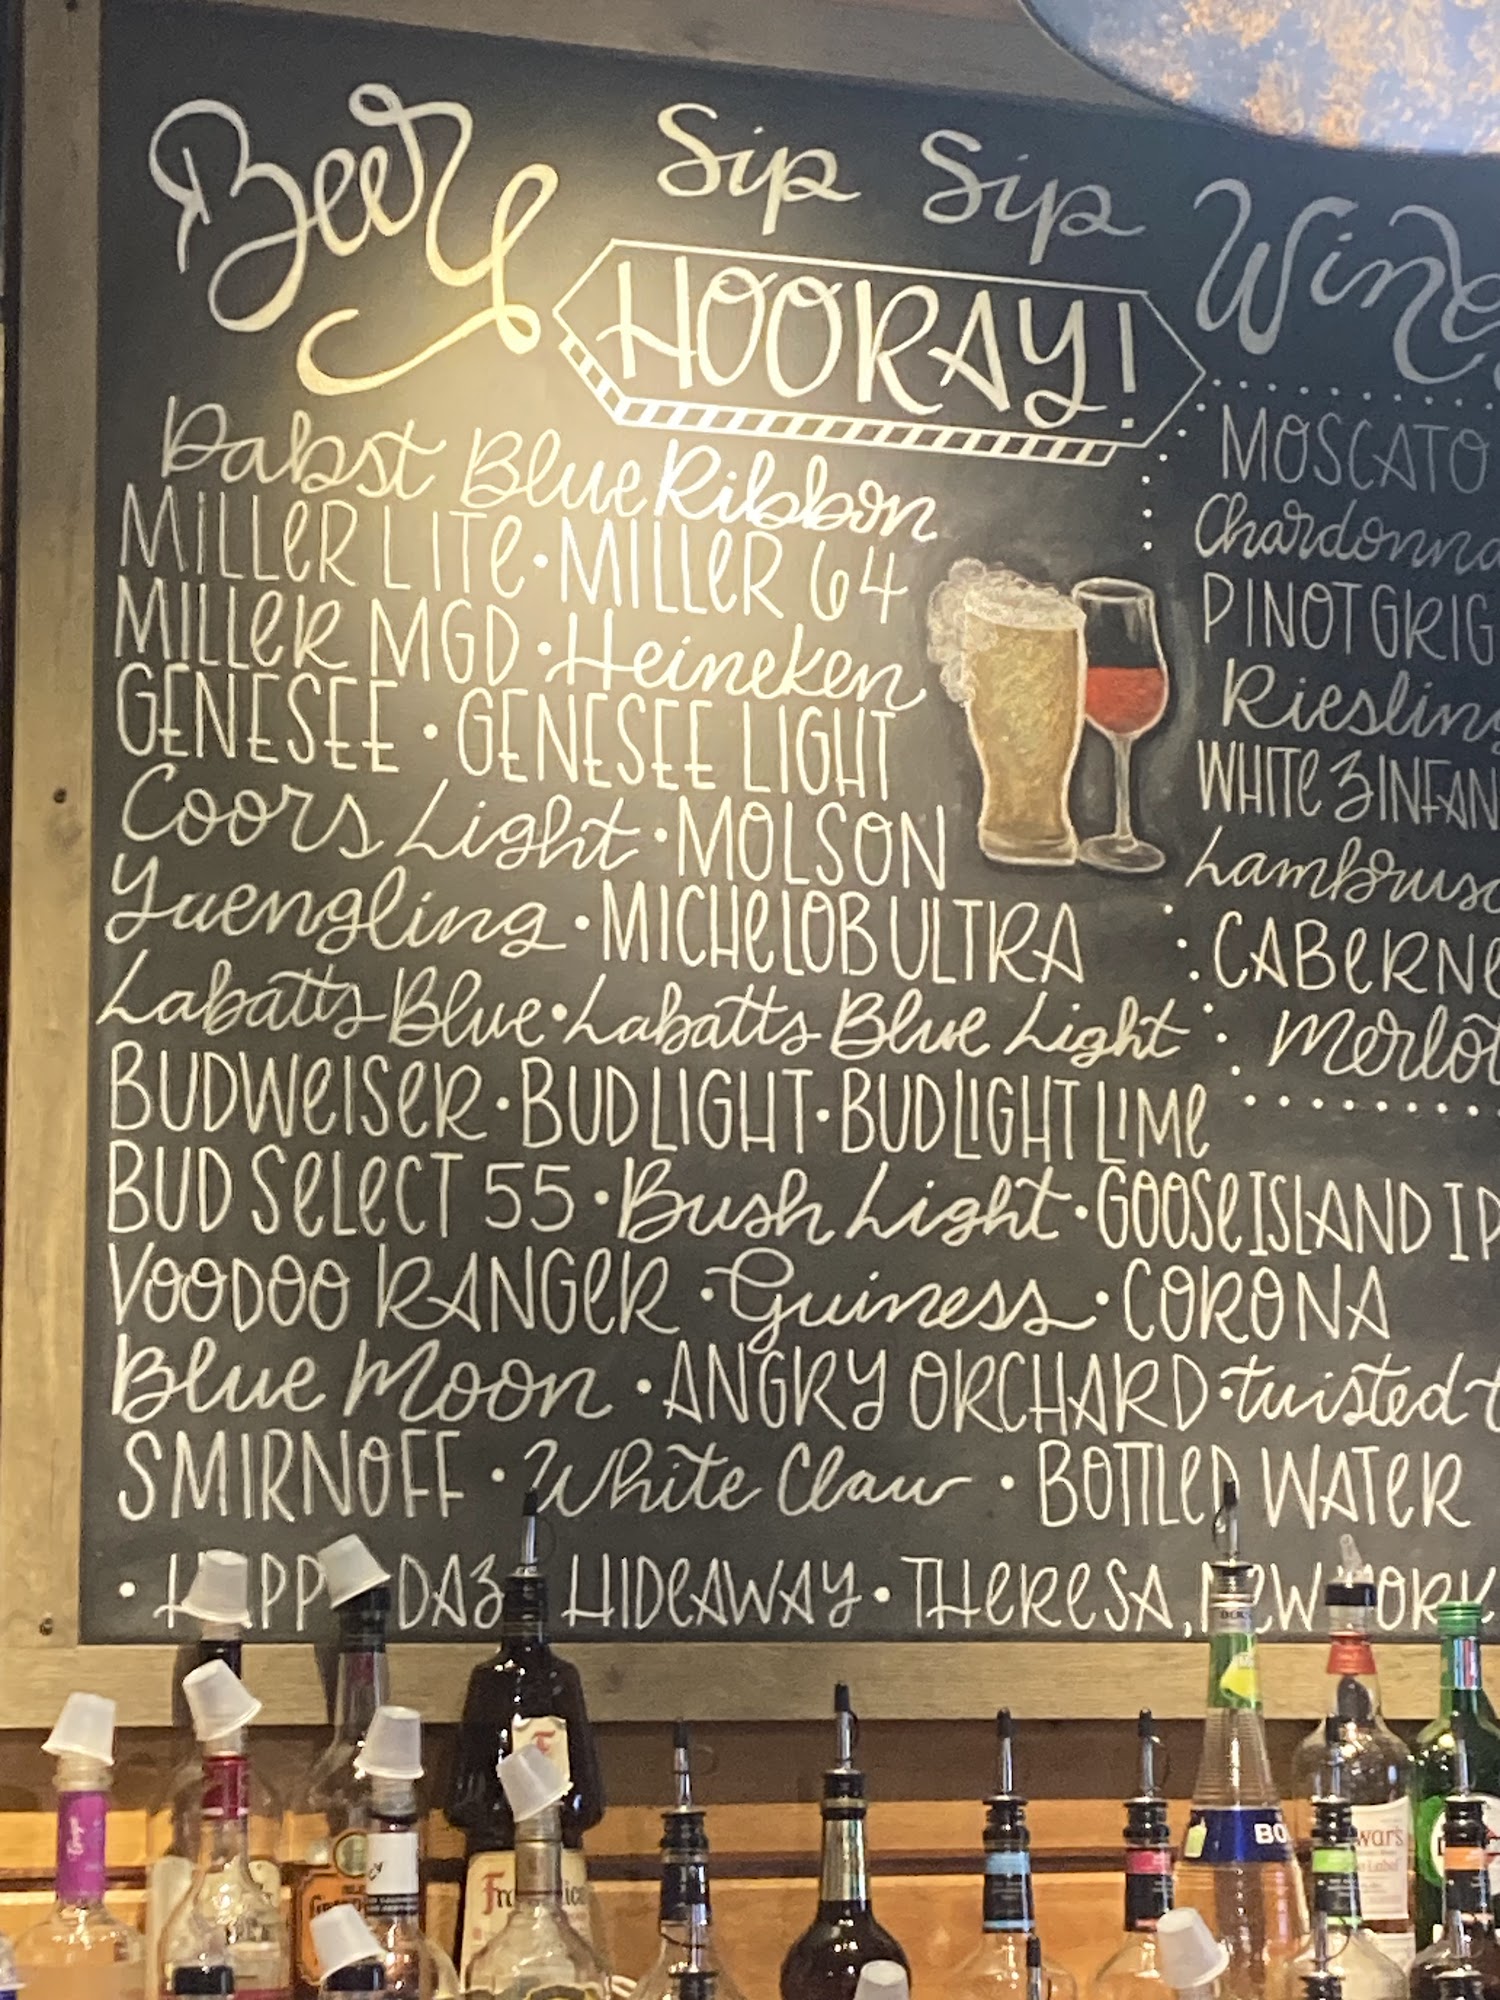 Beer
Sip Sip
HOORAY!
Wine
Pabst Blue Ribbon
MILLER LITE • MILLER 64
MILLER MGD • Heineken
GENESEE • GENESEE LIGHT
Coors Light • MOLSON
Yuengling • MICHELOB ULTRA
Labatts Blue • Labatts Blue Light
BUDWEISER • BUD LIGHT • BUD LIGHT LIME
BUD SELECT 55 • Bush Light • GOOSE ISLAND IP
VOODOO RANGER • Guiness • CORONA
Blue Moon • ANGRY ORCHARD • twisted t
SMIRNOFF • White Claw • BOTTLED WATER
• HAPPY DAZ HIDEAWAY • THERESA, NEW YORK
MOSCATO
Chardonna
PINOT GRIG
Riesling
WHITE ZINFAN
Lambrusc
CABERNE
Merlot
BO
wars